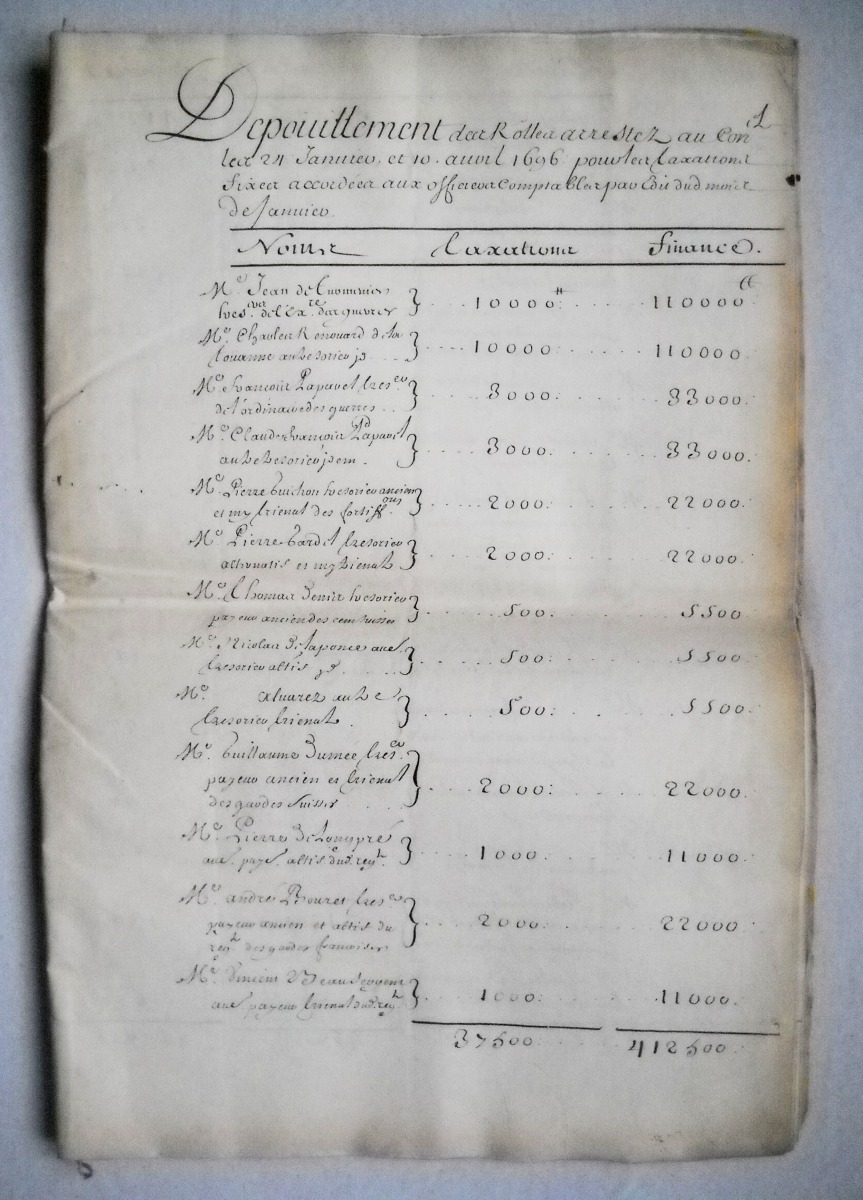 Depouillement des Rolles arrestez au Con.el
les 24 Janvier, et 10. avril 1696 pour les taxations
fixes accordées aux officiers Comptables par Edit dud. mois
de Janvier.
Noms Taxations Finance.
Me. Jean de
de l'Ex.re des guerres } 10000# 110000
Me. Charles Renouard de la
Touanne autre }
10000 110000
Me. François Paparel tres.er
de l'ordinaire des guerres } 3000. 33000.
Me. Claude françois Paparel
autre tresorier } 3000. 33000.
Me. Pierre tresorier ancien
et my trienal des fortiff.ons } 2000. 22000.
Me. Pierre tresorier
alternatif et my trienal } 2000. 22000.
Me. Thomas tresorier
payeur ancien des cent suisses } 500. 5500
Me. Nicolas Delaponce aut.
tresorier altif } 500. 5500.
Me. Alvarez autre
tresorier trienal. } 500. 5500.
Me. Guillaume Dumée tres.er
payeur ancien et trienal
des gardes suisses } 2000. 22000.
Me. Pierre Delongpré
aut. paye. altif dud. reg.t } 1000. 11000.
Me. andré Bouret tres.er
payeur ancien et altif du
reg.t des gardes françoises } 2000. 22000
Me. Vincent
aut. payeur trienal dud. reg.t } 1000. 11000.
37500. 412500.